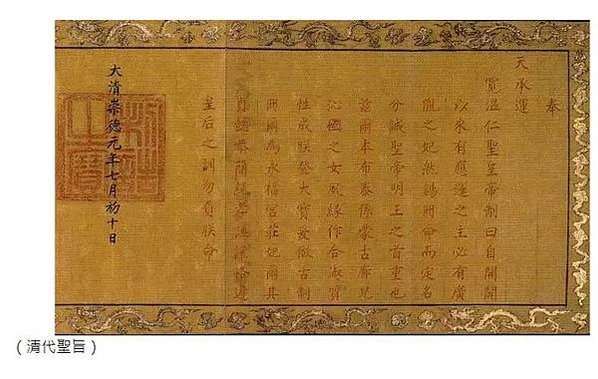 奉
天承運
寬温仁聖皇帝制曰自開闢
以來有應運之主必有廣
胤之妃然錫冊命而定名
分誠聖帝明王之首重也
茲爾本布泰係蒙古廓兒
沁國之女夙緣作合淑質
性成朕登大寶爰倣古制
冊爾為永福宮莊妃爾其
貞懿恭簡純孝謙讓恪遵
皇后之訓勿負朕命
大清崇德元年七月初十日
(清代聖旨)